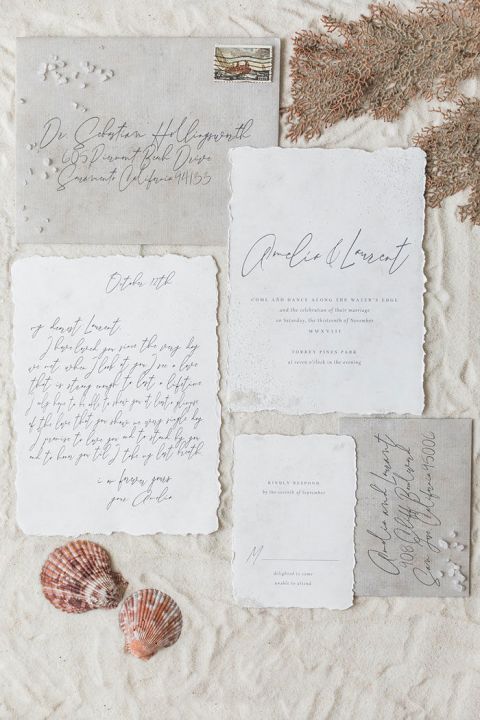 Dr. Sebastian Hollingsworth
605 Piermont Beach Drive
Sacramento California 94155
Amelia & Laurent
COME AND DANCE ALONG THE WATER'S EDGE
and the celebration of their marriage
on Saturday, the thirteenth of November
MMXVIII
TORREY PINES PARK
at seven o'clock in the evening
October 12th
my dearest Laurent,
I have loved you since the very day
we met when I look at you I see a love
that is strong enough to last a lifetime
I only hope to be able to show you at least a glimpse
of the love that you show me every single day
I promise to love you and to stand by you
and to honor you till I take my last breath
i am forever yours
your Amelia
KINDLY RESPOND
by the seventh of September
M
delighted to come
unable to attend
Amelia and Laurent
908 Cliff Boulevard
San Jose California 95000